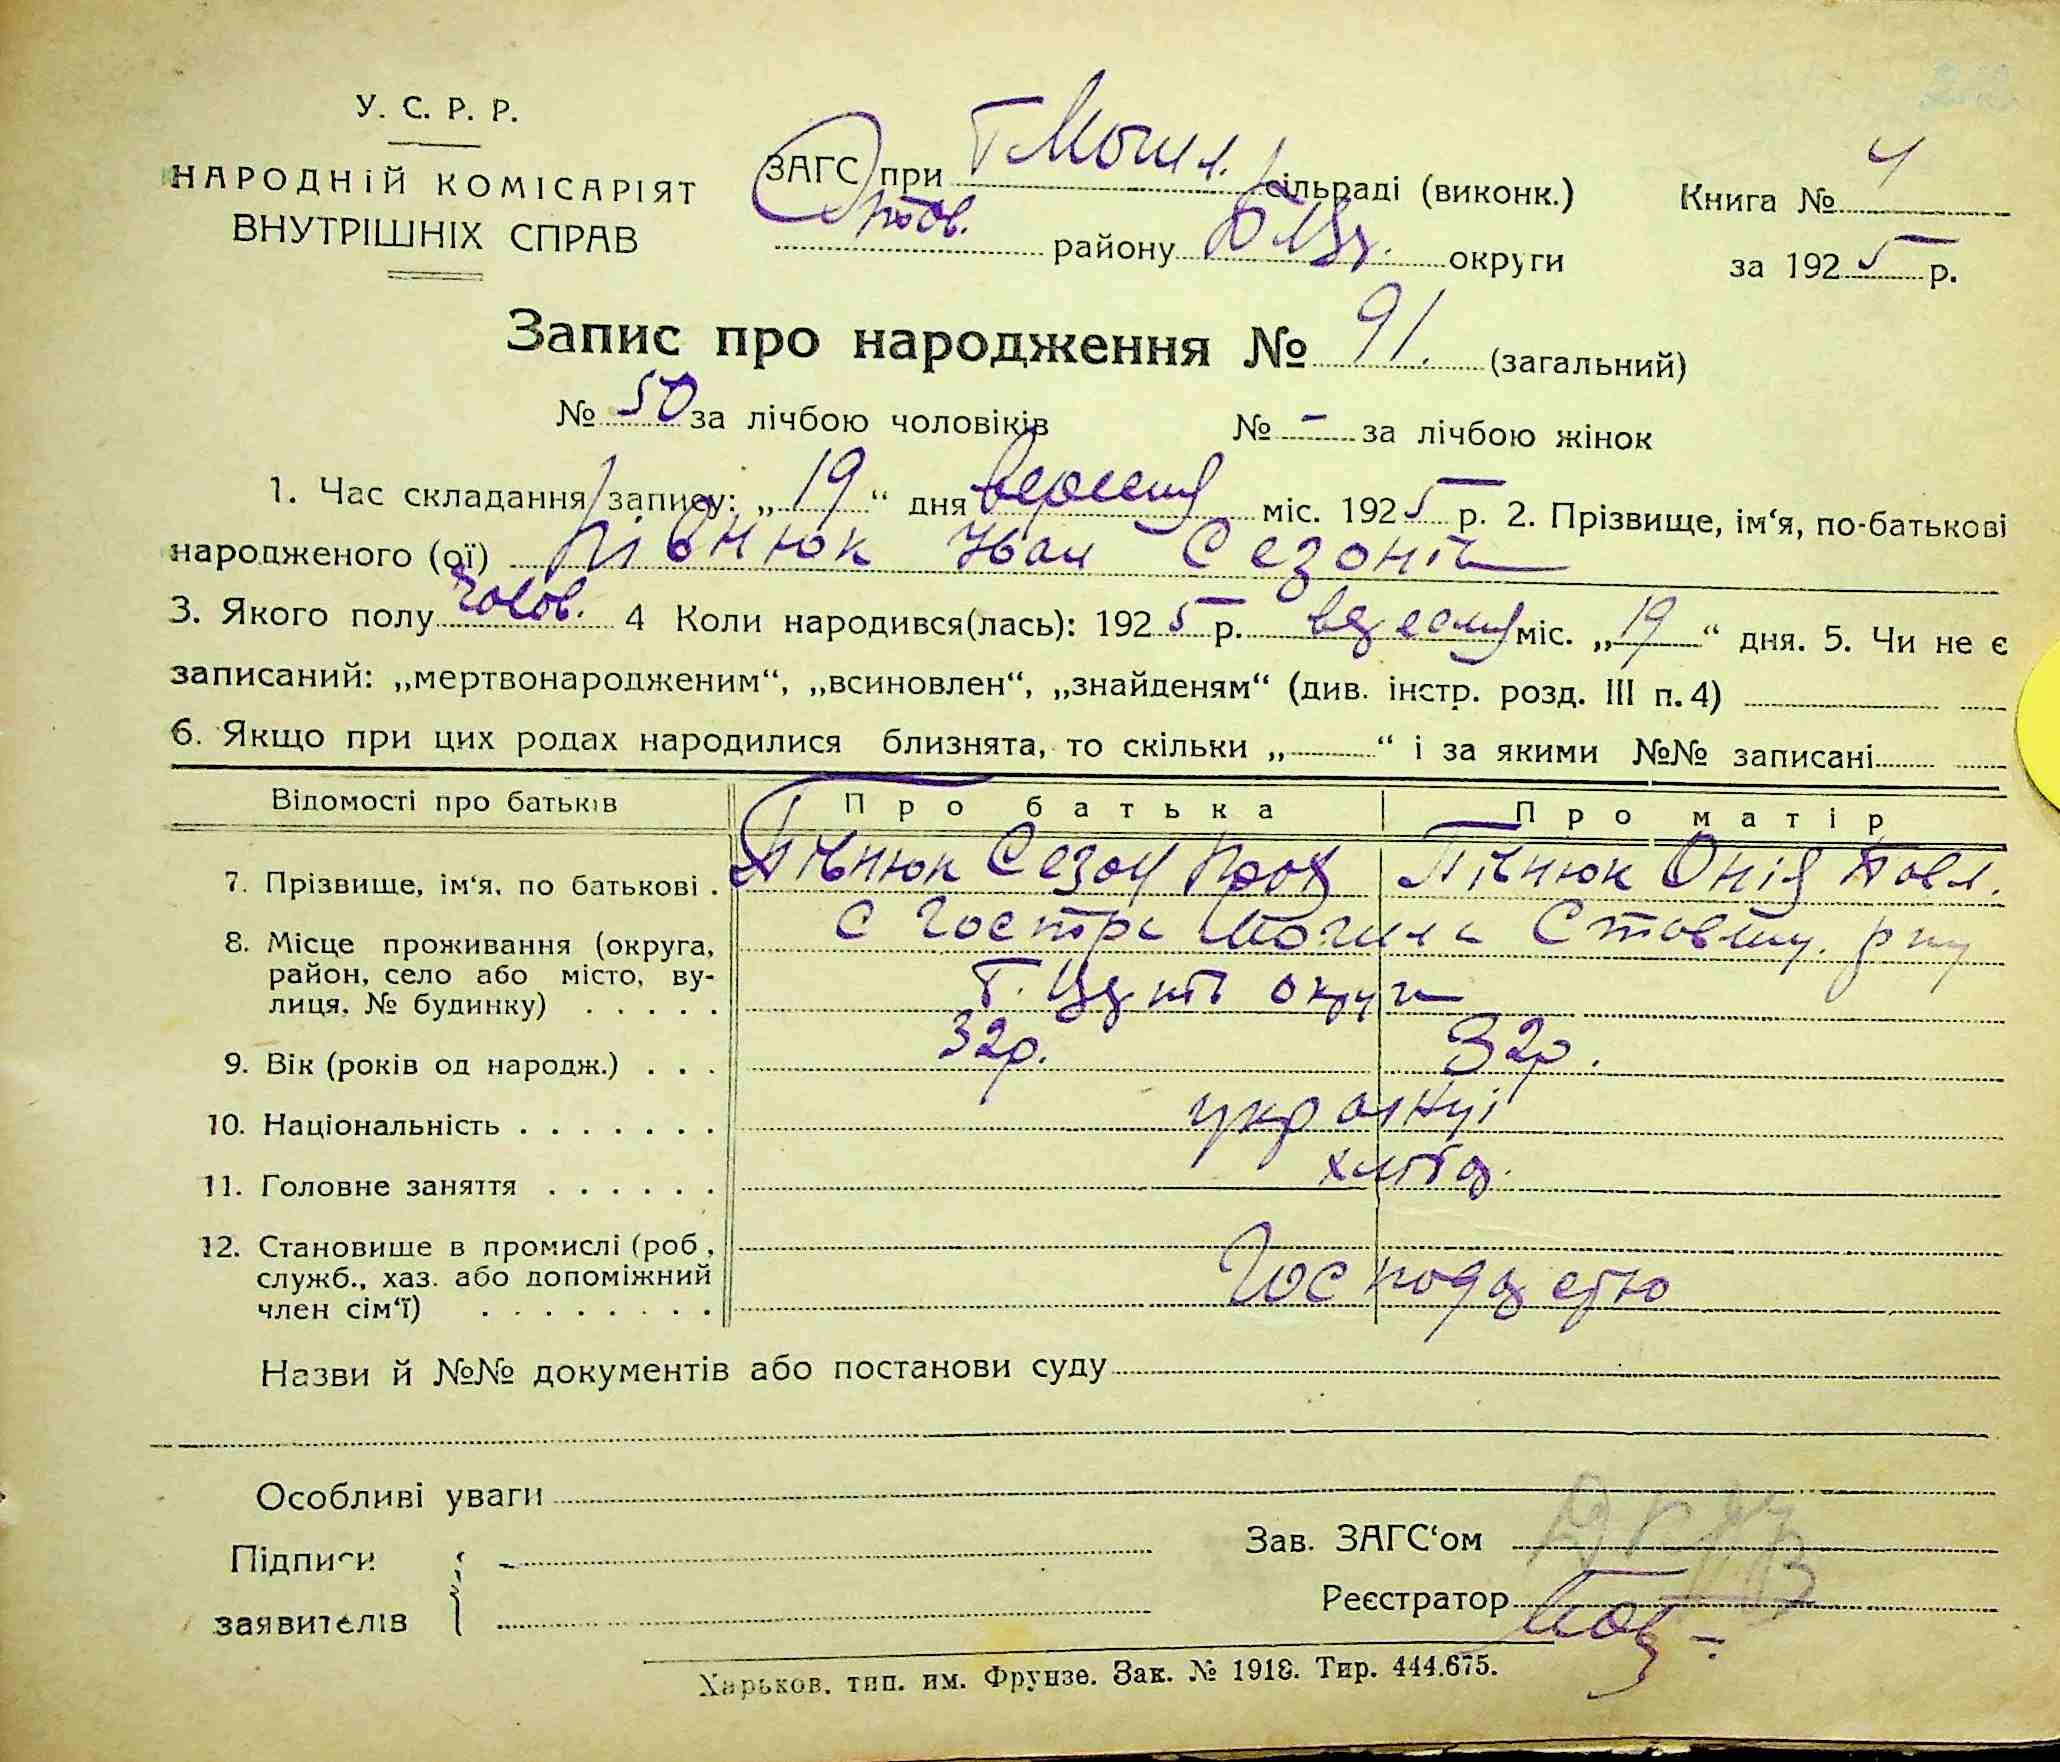 У. С. Р. Р.
НАРОДНІЙ КОМІСАРІЯТ
ВНУТРІШНІХ СПРАВ
ЗАГС при Г Могил. сільраді (виконк.)
Став. району Б Цер. округи
Книга № 4
за 1925 р.
Запис про народження № 91. (загальний)
№ 50 за лічбою чоловіків № - за лічбою жінок
1. Час складання запису: „19“ дня вересня міс. 1925 р. 2. Прізвище, ім‘я, по-батькові
народженого (ої) Півнюк Іван Сезонів
3. Якого полу чолов. 4 Коли народився(лась): 1925 р. вересня міс. „19“ дня. 5. Чи не є
записаний: „мертвонародженим“, „всиновлен“, „знайденям“ (див. інстр. розд. III п. 4)
6. Якщо при цих родах народилися близнята, то скільки „ “ і за якими №№ записані
Відомості про батьків Про батька Про матір
7. Прізвище, ім‘я, по батькові . Півнюк Сезон Півнюк Онія Павл.
8. Місце проживання (округа, с Гостра Могила Ставищ. р ну
район, село або місто, ву-
лиця, № будинку) . . . . . Б. Церкв округи
9. Вік (років од народж.) . . . 32р. 32р.
10. Національність . . . . . . . українці
11. Головне заняття . . . . . . хліб
12. Становище в промислі (роб,
служб., хаз. або допоміжний
член сім‘ї) . . . . . . . .
Назви й №№ документів або постанови суду
Особливі уваги
Зав. ЗАГС‘ом
Підписи
Реєстратор
заявителів
Харьков. тип. им. Фрунзе. Зак. № 1918. Тир. 444.675.